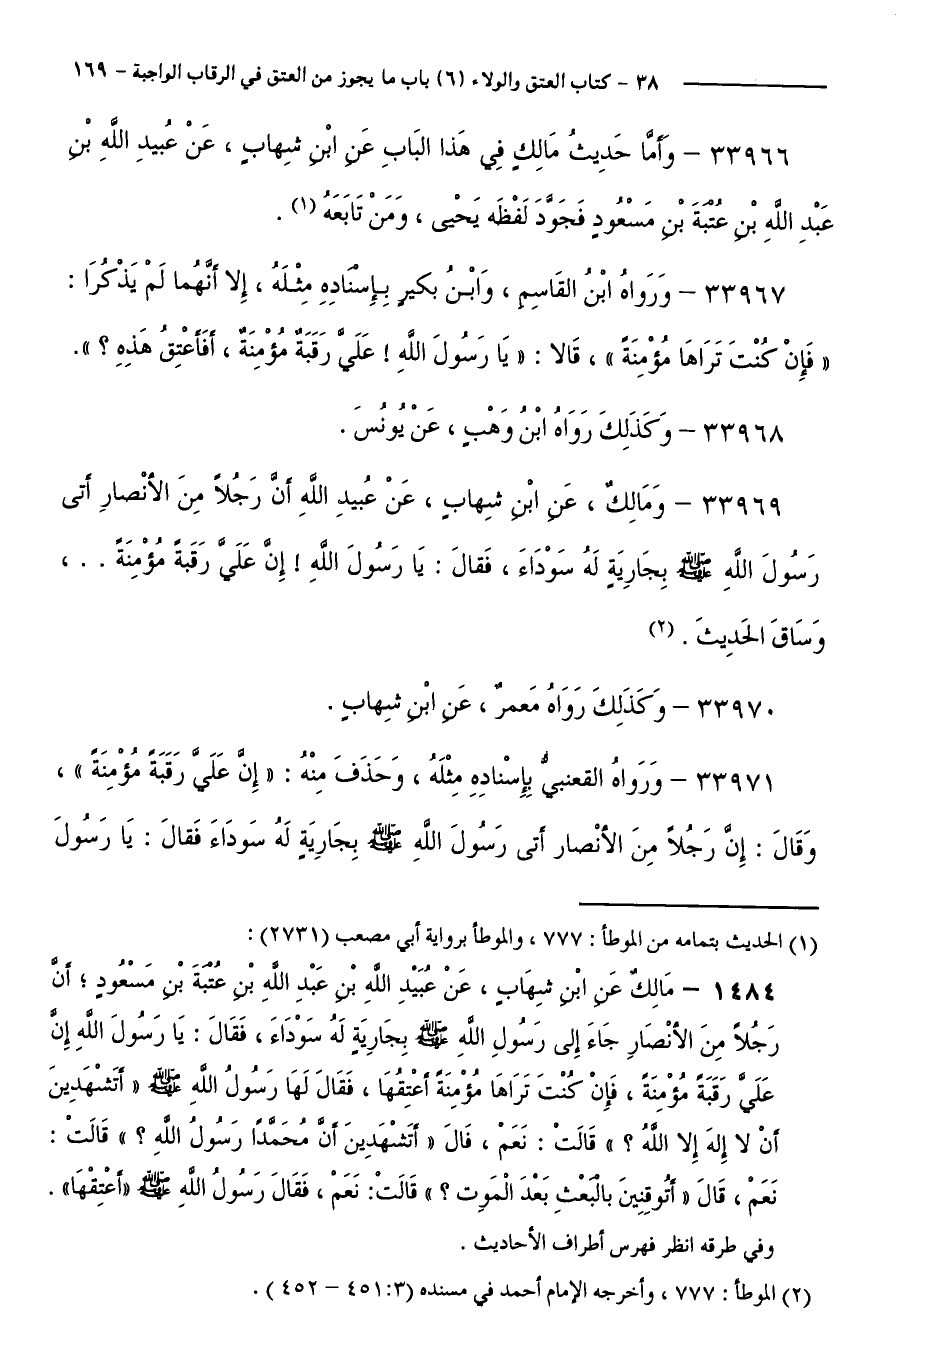 ٣٨ - كتاب العتق والولاء (٦) باب ما يجوز من العتق في الرقاب الواجبة - ١٦٩
٣٣٩٦٦ - وَأَمَّا حَدِيثُ مَالِكٍ فِي هَذا البَابِ عَنِ ابْنِ شِهابٍ ، عَنْ عُبيدِ اللَّهِ بْنِ
عَبْدِ اللَّهِ بْنِ عُتْبَةَ بْنِ مَسْعُودٍ فَجَوَّدَ لَفْظَه يَحْيى ، وَمَنْ تَابَعَهُ (١) .
٣٣٩٦٧ - وَرَواهُ ابْنُ القَاسِمِ ، وَابْنُ بكيرٍ بِإِسْنَادِهِ مِثْلَهُ ، إِلا أَنَّهُما لَمْ يَذْكُرَا :
« فَإِنْ كُنْتَ تَرَاهَا مُؤْمِنَةً » ، قَالا : « يَا رَسُولَ اللَّهِ ! عَلَيَّ رَقَبَةٌ مُؤْمِنَةٌ ، أَفَأَعْتِقُ هَذِهِ ؟ ».
٣٣٩٦٨ - وَكَذَلِكَ رَوَاهُ ابْنُ وَهْبٍ ، عَنْ يُونُسَ .
٣٣٩٦٩ - وَمَالِكٌ ، عَنِ ابْنِ شِهابٍ ، عَنْ عُبيدِ اللَّهِ أَنَّ رَجُلاً مِنَ الأَنْصارِ أَتى
رَسُولَ اللَّهِ ﷺ بِجَارِيَةٍ لَهُ سَوْدَاءَ ، فَقالَ : يا رَسُولَ اللَّهِ ! إِنَّ عَلَيَّ رَقَبَةً مُؤْمِنَةً . . ،
وَسَاقَ الحَدِيثَ . (٢)
٣٣٩٧٠ - وَكَذَلِكَ رَوَاهُ مَعمرٌ ، عَنِ ابْنِ شِهابٍ .
٣٣٩٧١ - وَرَواهُ القعنبيُّ بِإِسْنادِهِ مِثْلَهُ ، وَحَذَفَ مِنْهُ : « إِنَّ عَلَيَّ رَقَبَةً مُؤْمِنَةً » ،
وَقَالَ : إِنَّ رَجُلاً مِنَ الأَنْصار أَتى رَسُولَ اللَّهِ ﷺ بِجَارِيَةٍ لَهُ سَودَاءَ فَقالَ : يَا رَسُولَ
(١) الحديث بتمامه من الموطأ : ٧٧٧ ، والموطأ برواية أبي مصعب (٢٧٣١) :
١٤٨٤ - مَالِكٌ عَنِ ابْنِ شِهَابٍ ، عَنْ عُبَيْدِ اللَّهِ بْنِ عَبْدِ اللَّهِ بْنِ عُتْبَةَ بْنِ مَسْعُودٍ ؛ أَنَّ
رَجُلاً مِنَ الأَنْصَارِ جَاءَ إِلى رَسُولِ اللَّهِ ﷺ بِجَارِيَةٍ لَهُ سَوْدَاءَ ، فَقَالَ : يَا رَسُولَ اللَّهِ إِنَّ
عَلَيَّ رَقَبَةً مُؤْمِنَةً ، فَإِنْ كُنْتَ تَرَاهَا مُؤْمِنَةً أَعتِقُهَا ، فَقَالَ لَهَا رَسُولُ اللَّهِ ﷺ « أَتَشْهَدِينَ
أَنْ لا إِلهَ إِلا اللَّهُ ؟ » قَالَتْ : نَعَمْ ، قَالَ « أَتَشْهَدِينَ أَنَّ مُحَمَّدًا رَسُولُ اللَّهِ ؟ » قَالَتْ :
نَعَمْ ، قَالَ « أَتُوقِنِينَ بالْبَعْثِ بَعْدَ الْمَوتِ ؟ » قَالَتْ: نَعَمْ ، فَقَالَ رَسُولُ اللَّهِ ﷺ «أَعْتِقْهَا» .
وفي طرقه انظر فهرس أطراف الأحاديث .
(٢) الموطأ : ٧٧٧ ، وأخرجه الإمام أحمد في مسنده (٣:٤٥١ - ٤٥٢ ) .